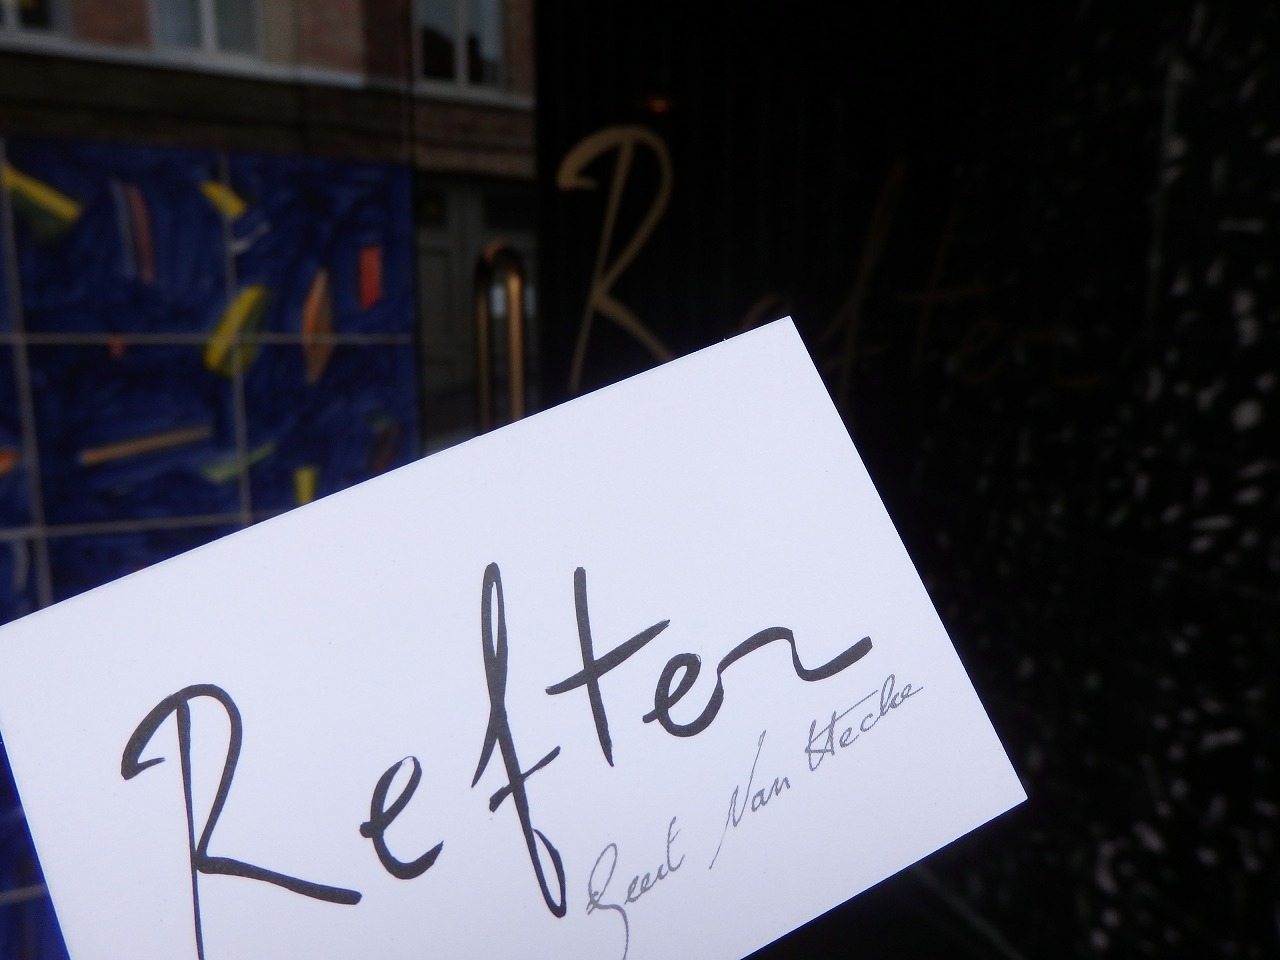 Refter
Refter
Geert Van Hecke